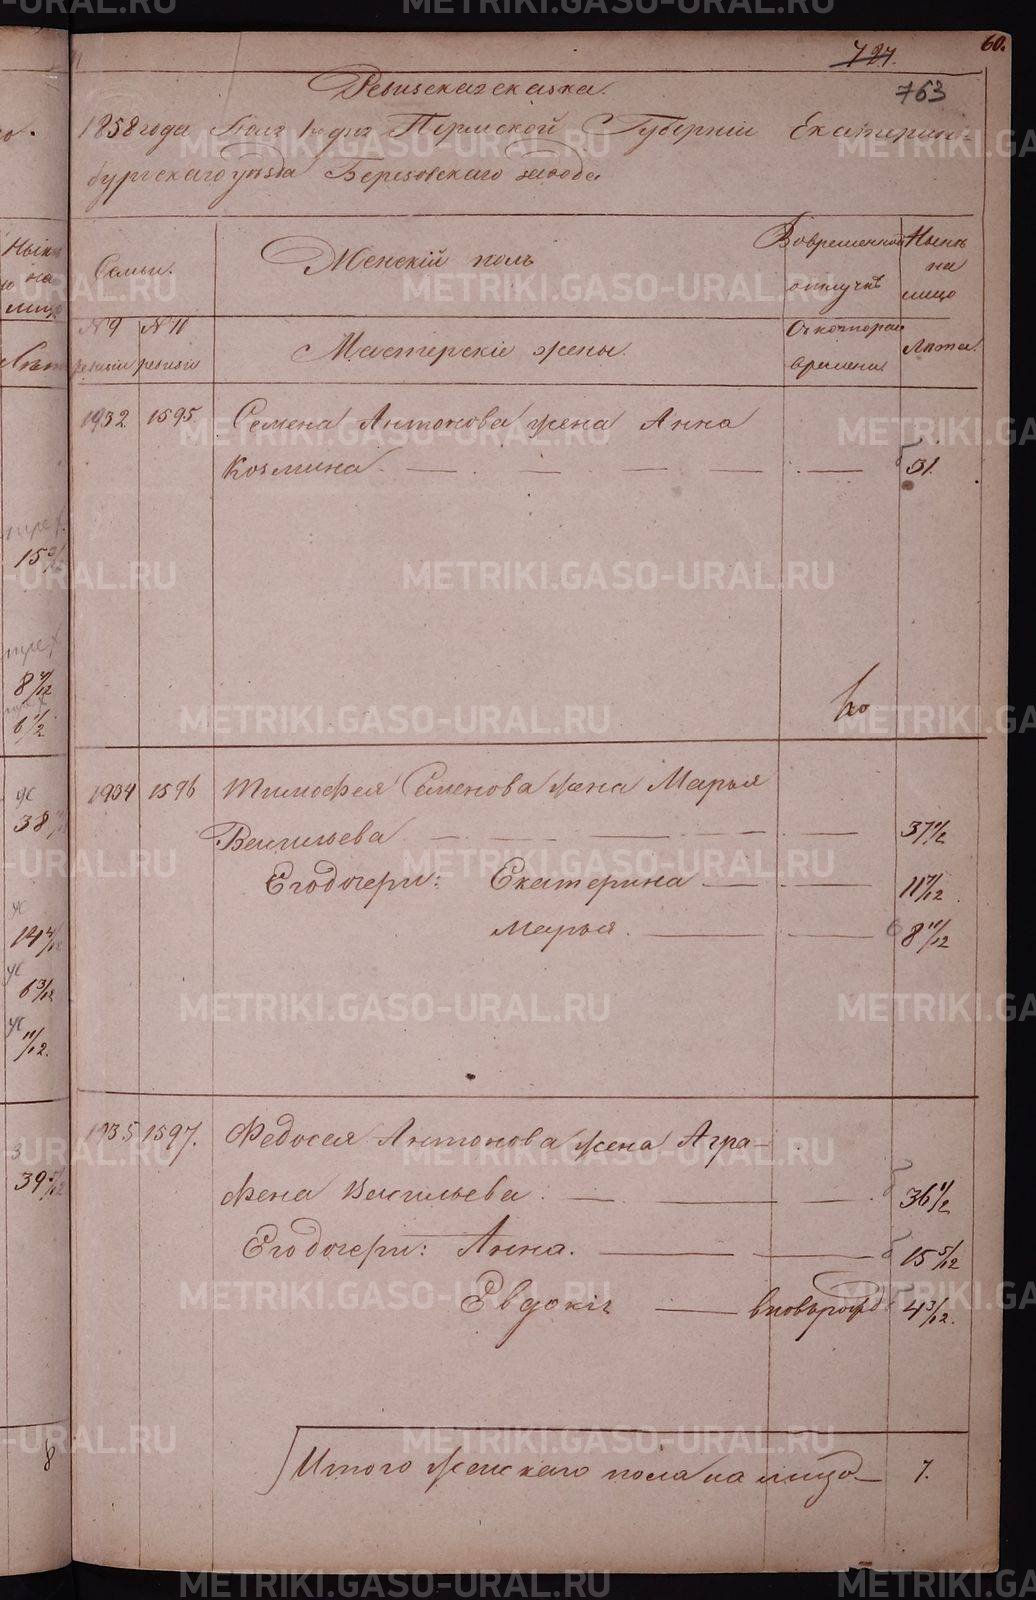 60.
727.
763
Ревизская сказка.
1858 года Мая 1 дня Пермской Губерніи Екатерин-
бургскаго уѣзда Березовскаго завода
Семьи.
Женскій полъ
Во временной отлучкѣ
Нынѣ на лицо
№ 9 ревизіи
№ 10 ревизіи
Мастерскіе жены.
Съ котораго времени
Лѣта.
1932 1595 Семена Антонова жена Анна
Козмина — — — — — 51.
1934 1596 Тимофея Семенова жена Марья
Васильева — — — — 37 1/2
Его дочери: Екатерина — — 11 7/12
Марья. — — 8 10/12
1935 1597. Федосея Антонова жена Агра-
фена Васильева. — — — 36 1/2
Его дочери: Анна. — — 15 5/12
Евдокія — вновьрожд. 4 3/12.
Итого женскаго пола на лицо — 7.
15
8
6 1/2
38
14
6 3/12
11/12.
39
8
METRIKI.GASO-URAL.RU